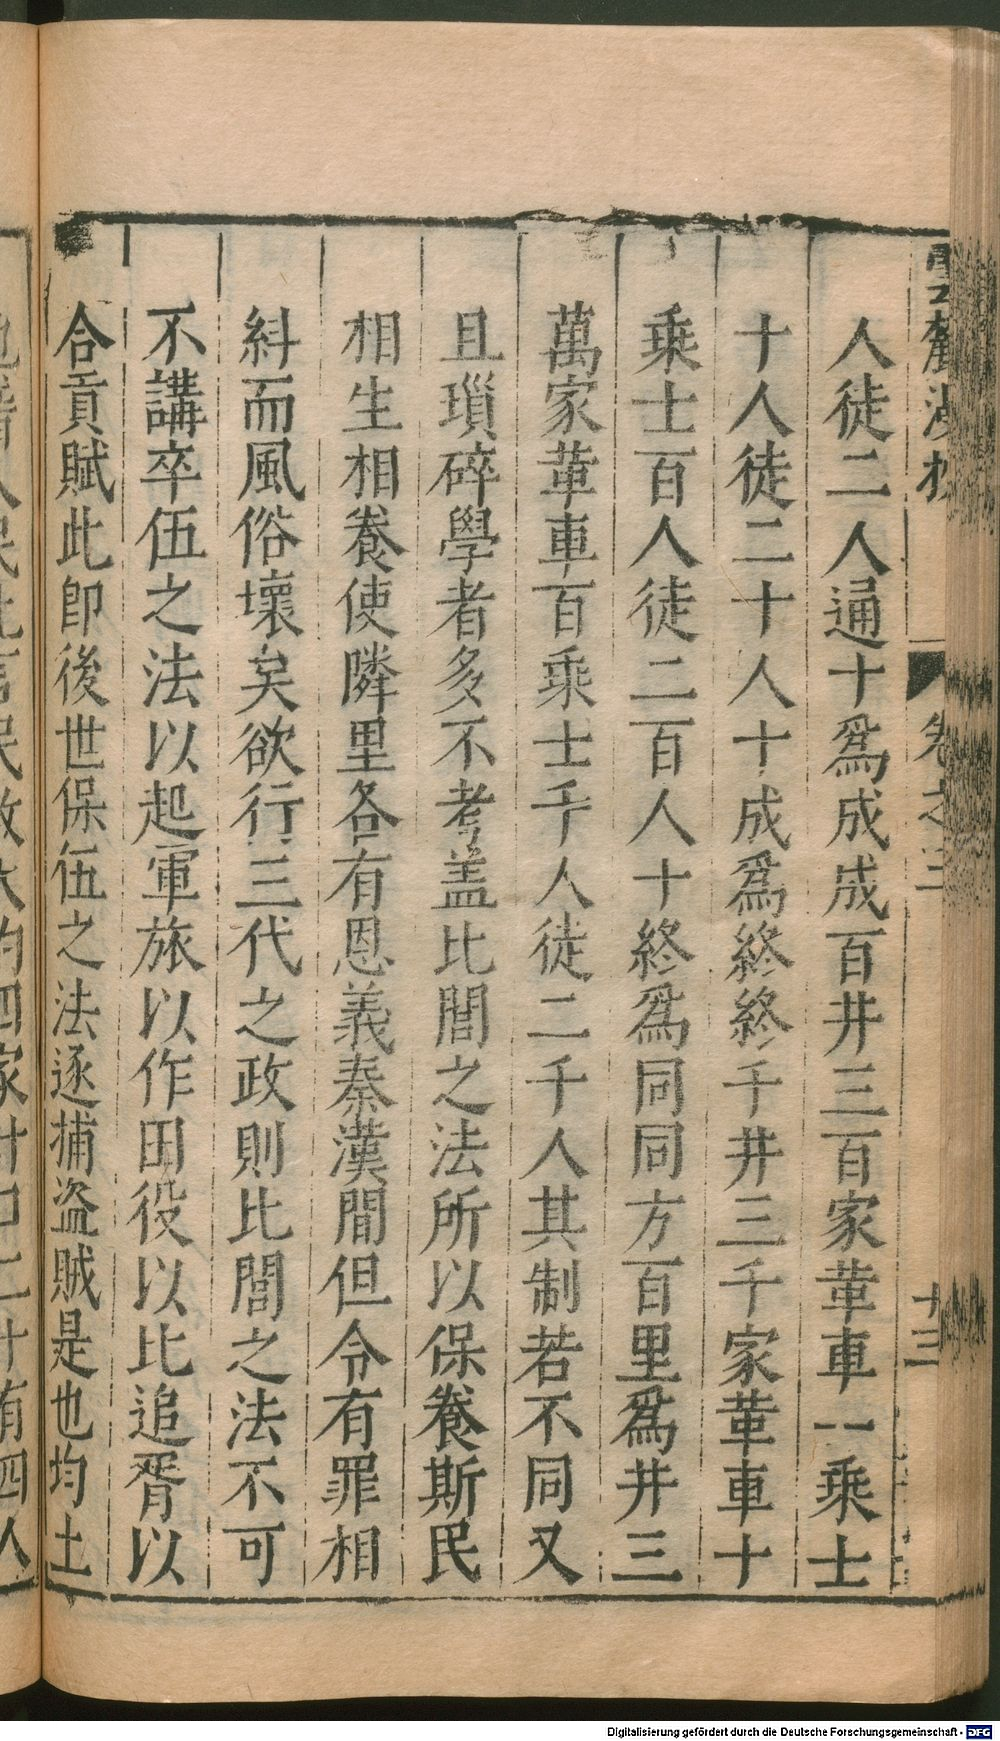 雲麓漫抄
卷之三
十三
人徒二人通十爲成成百井三百家革車一乘士
十人徒二十人十成爲終終千井三千家革車十
乘士百人徒二百人十終爲同同方百里爲井三
萬家革車百乘士千人徒二千人其制若不同又
且瑣碎學者多不考盖比閭之法所以保養斯民
相生相養使隣里各有恩義秦漢間但令有罪相
糾而風俗壞矣欲行三代之政則比閭之法不可
不講卒伍之法以起軍旅以作田役以比追胥以
合貢賦此卽後世保伍之法逐捕盜賊是也均土
Digitalisierung gefördert durch die Deutsche Forschungsgemeinschaft - DFG